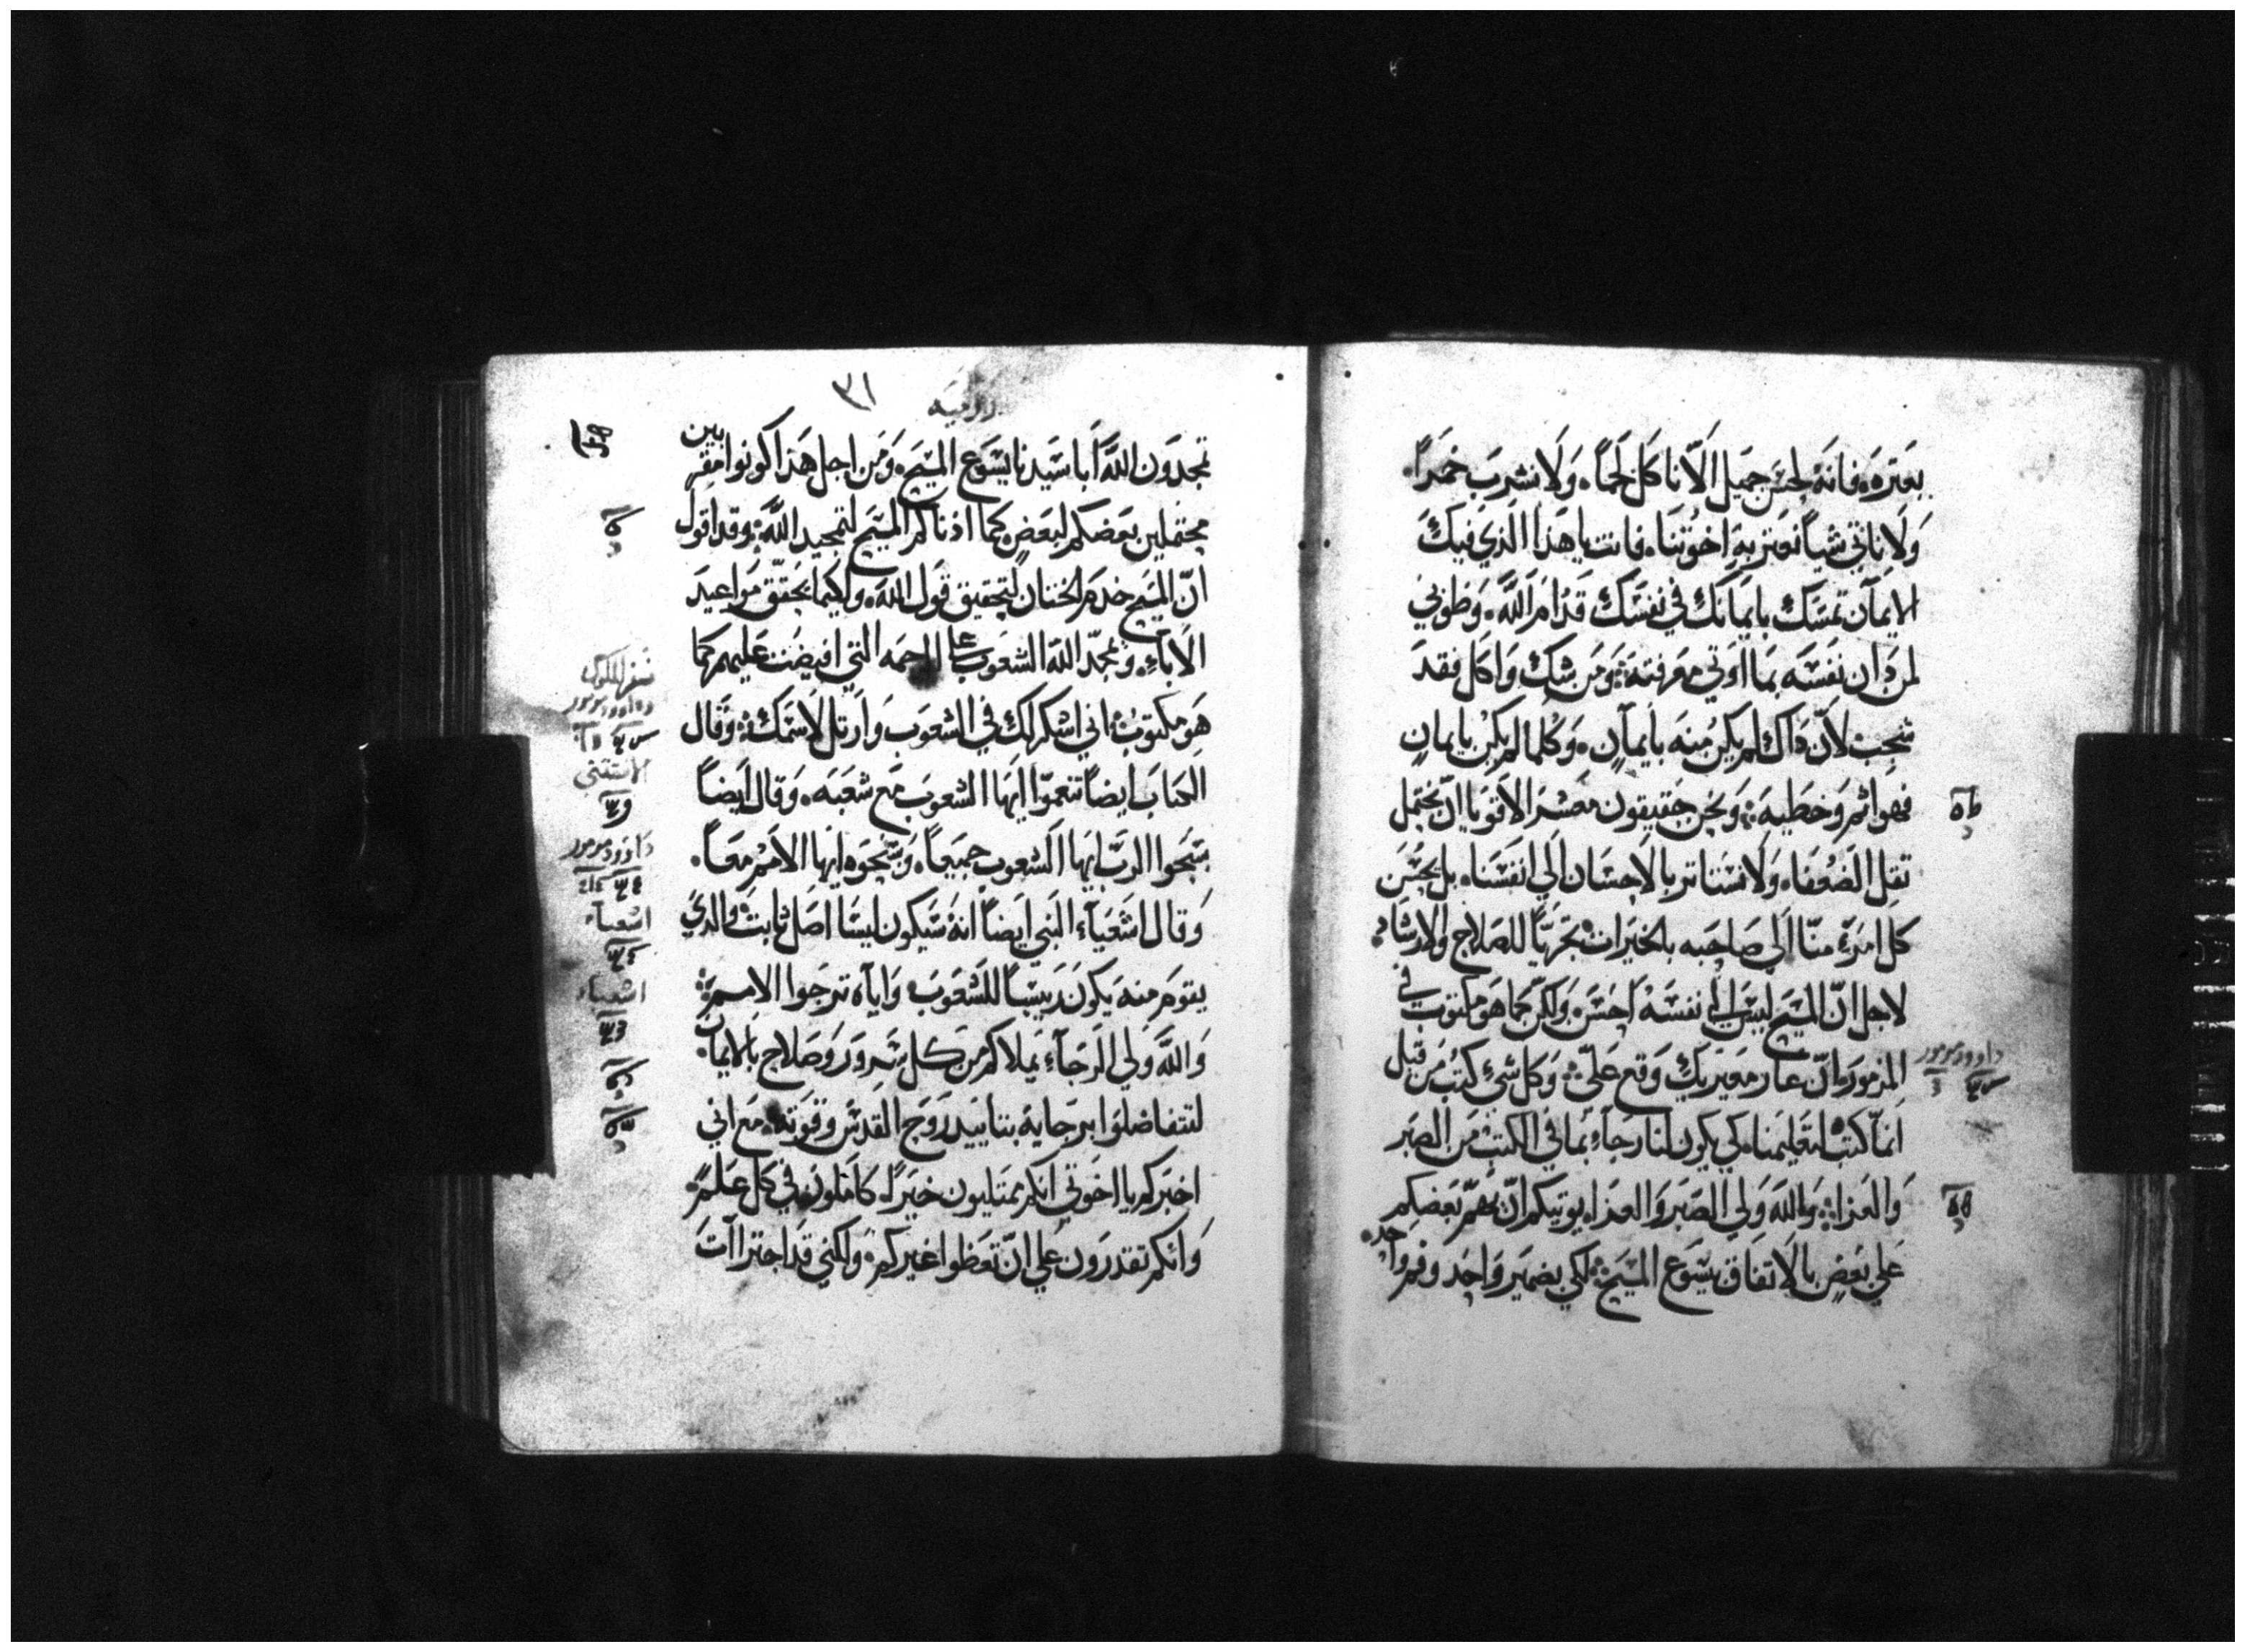 بعتره، فانه لحسن جميل الّا ناكل لحماً، ولا نشرب خمراً.
ولا ناتي شياً نعتر به اخوتنا، فانت يا هذا الذي فيك
الايمان تمسك بايمانك في نفسك قدام الله، وطوبي
لمن دان نفسه بما اوتي معرفته ومن شك واكل فقد
شجب لانّ ذاك لم يكن منه بايمان، وكلما لم يكن بايمان
فهو اثم وخطيه ونحن حقيقون معشر الاقويا ان نحتمل
ثقل الضعفاء ولا نستاتر بالاحسان الي انفسنا، بل يحسن
كل امرئ منّا الي صاحبه بالخيرات تحريّاً للصلاح والارشاد
لاجل انّ المسيح ليس الي نفسه احسن ولكن كما هو مكتوب في
المزمور انّ عار معيريك وقع عليّ وكل شي كتب من قبل
انما كتب لتعليمنا، كي يكون لنا رجاء بما في الكتب من الصبر
داوود مزمور
والعزاء والله ولي الصبر والعزاء يوتيكم انّ يهم بعضكم
علي بعض بالاتفاق يسوع المسيح لكي بضمير واحد وفم واحد.
روميه
٣١
تمجدون الله ابا سيدنا يسوع المسيح، ومن اجل هذا كونوا مقربين
محتملين بعضكم لبعض كما ادناكم المسيح لتمجيد الله وقد اقول
انّ المسيح خدم الختان لتحقيق قول الله، ولكيما يحقق مواعيد
الاباء، وتمجد الله الشعوب علي الرحمه التي افيضت عليهم كما
هو مكتوب اني اشكرلك في الشعوب وارتل لاسمك وقال
الكتاب ايضاً تنعموا ايها الشعوب مع شعبه، وقال ايضاً
سبحوا الرب ايها الشعوب جميعاً، وسبحوه ايها الامم معاً،
وقال اشعياء النبي ايضاً انه سيكون ليسا اصل ثابت والذي
يقوم منه يكون رييساً للشعوب واياه ترجوا الامم
والله ولي الرجاء يملاكم من كل سرور وصلاح بالايمان
لتتفاضلوا برجايه بتاييد روح القدس وقوته، مع اني
اخبركم يا اخوتي انكم ممتليون خيراً، كاملون في كل علم
وانكم تقدرون علي انّ تعظوا غيركم ولكني قد اجترات
سفر الملوك
داوود مزمور
الاستتني
داوود مزمور
اشعياء
اشعياء